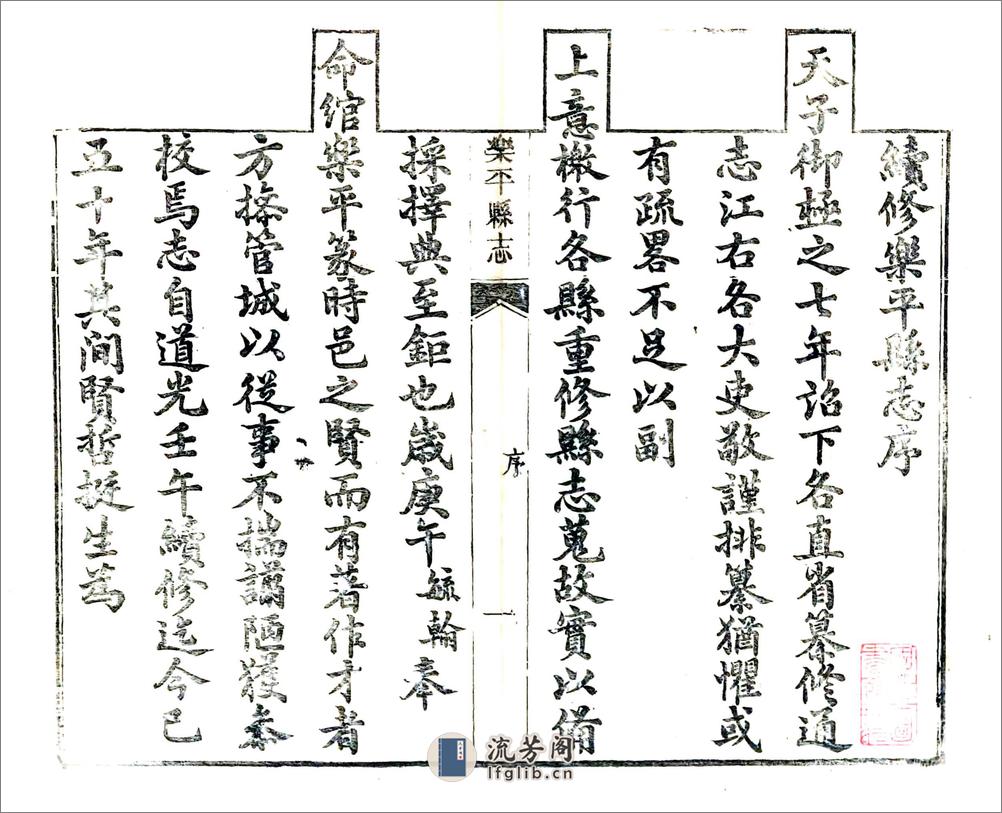 續修樂平縣志序
天子御極之七年詔下各直省纂修通
志江右各大吏敬謹排纂猶懼或
有疏畧不足以副
上意檄行各縣重修縣志蒐故實以備
樂平縣志
序
一
採擇典至鉅也歲庚午毓翰奉
命綰樂平篆時邑之賢而有著作才者
方搦管城以從事不揣譾陋獲忝
校焉志自道光壬午續修迄今已
五十年其間賢哲挺生為
流芳阁
lfglib.cn